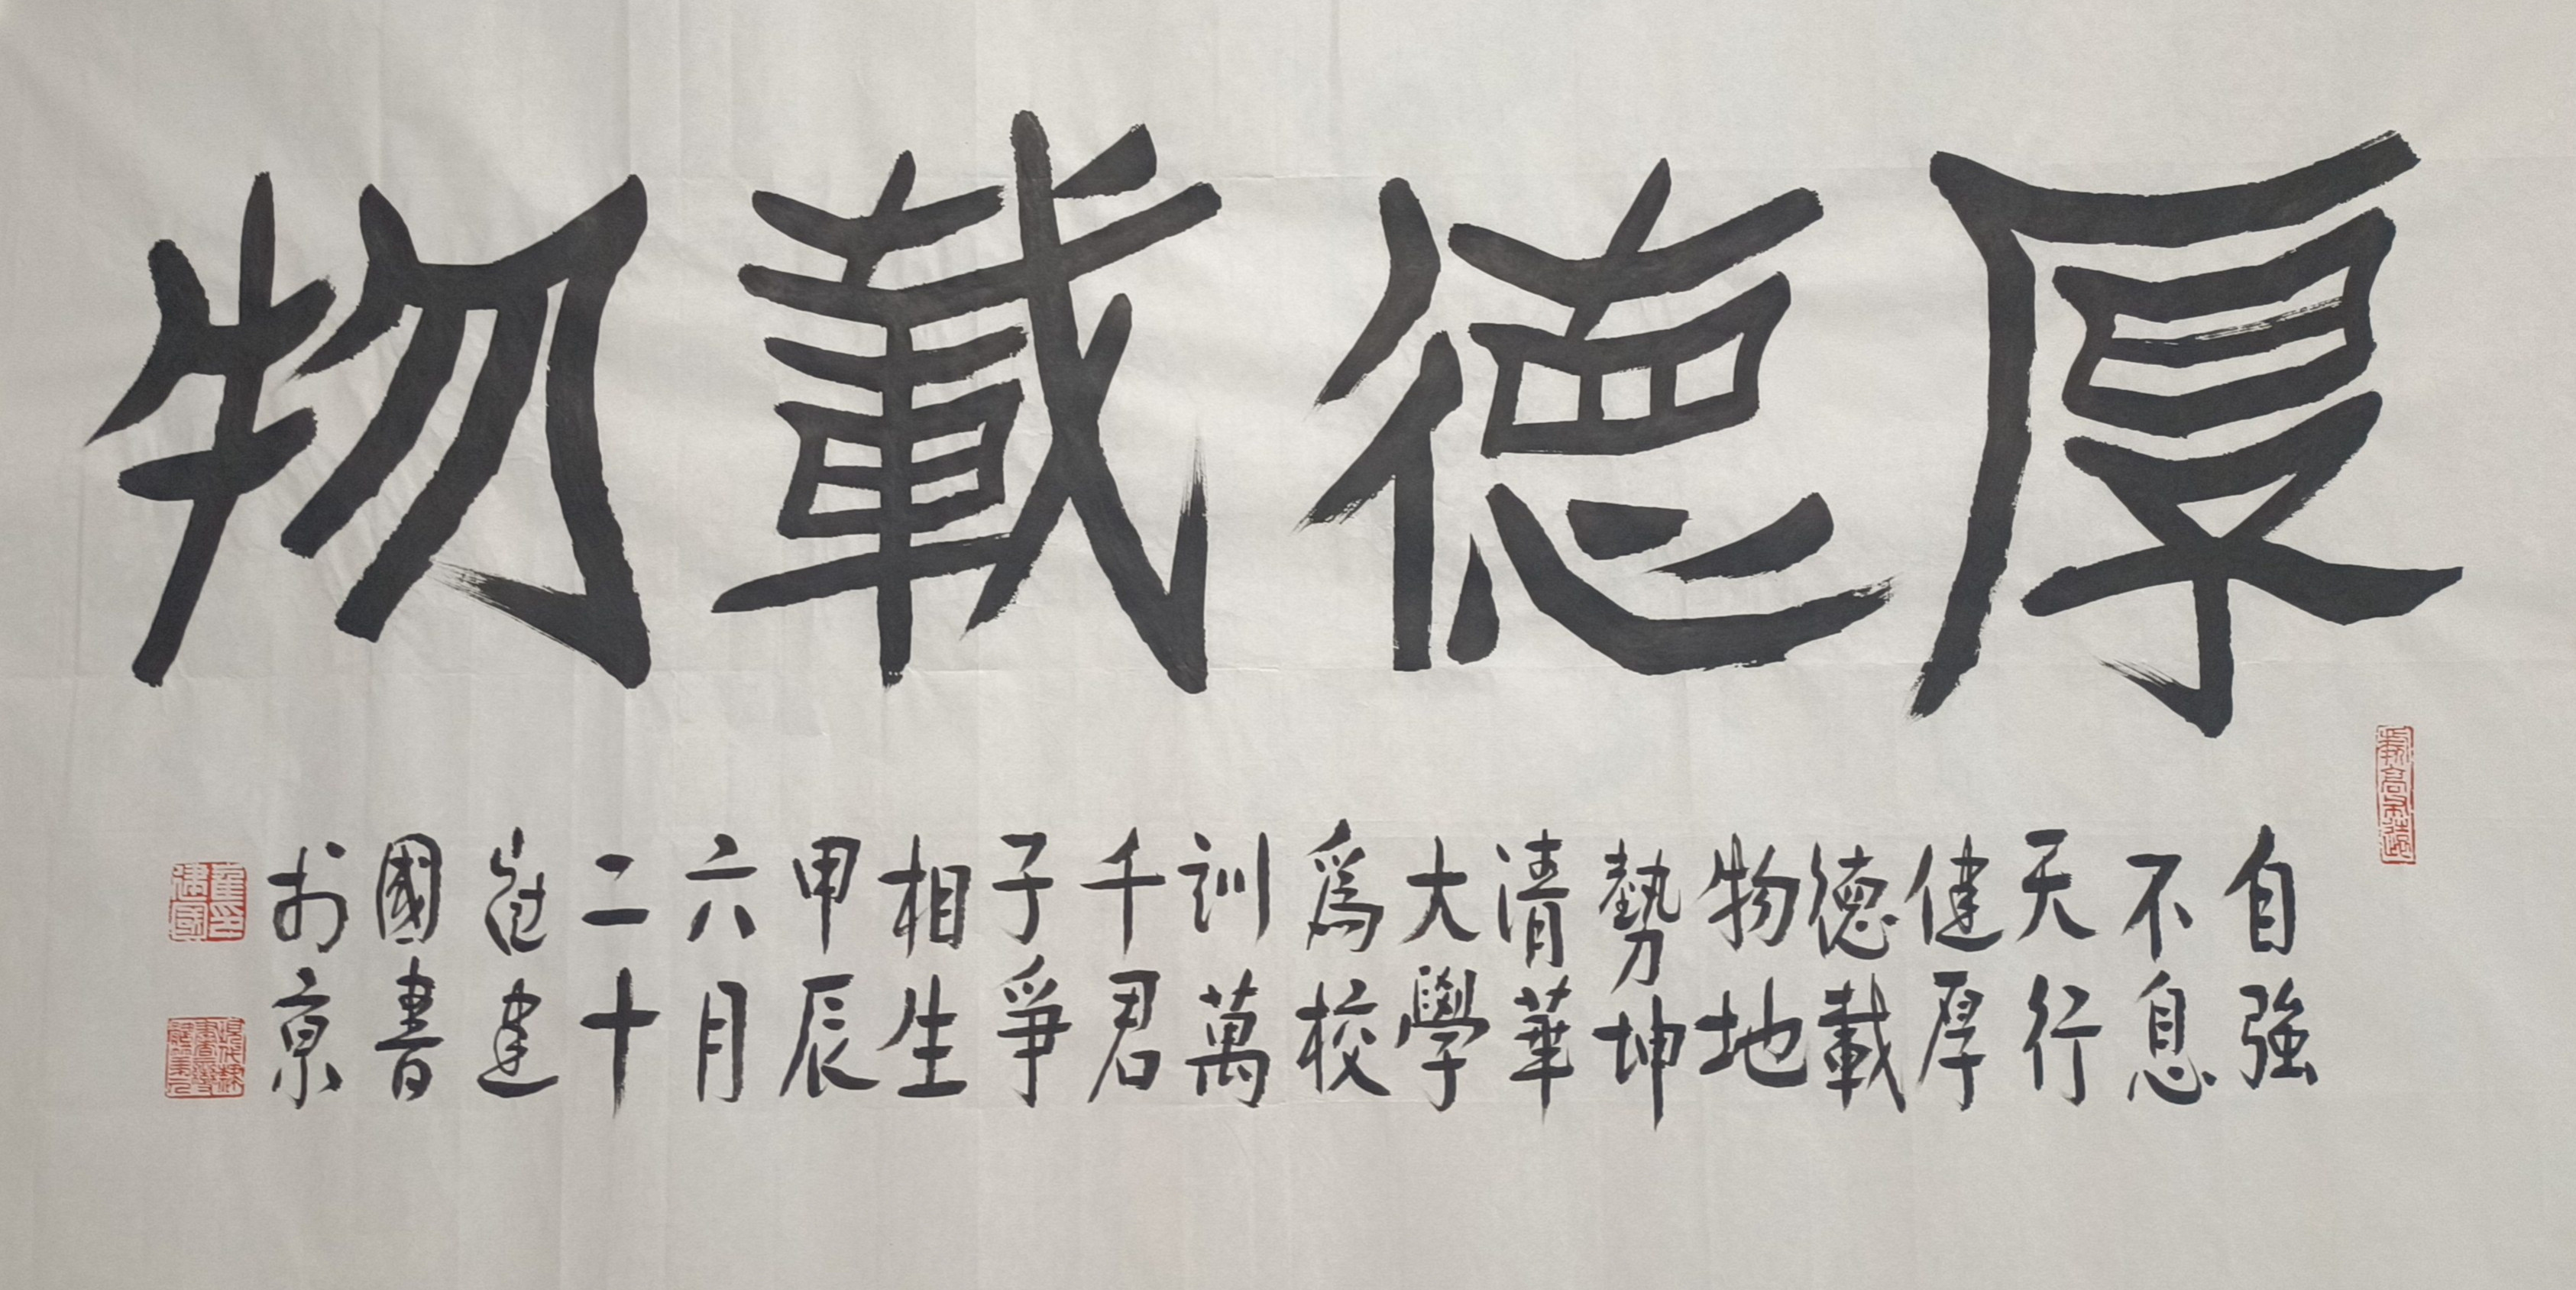 厚德載物
自強
不息
天行
健厚
德載
物地
勢坤
清華
大學
爲校
訓萬
千君
子爭
相生
甲辰
六月
二十
崔建
國書
於京
崔印
建國